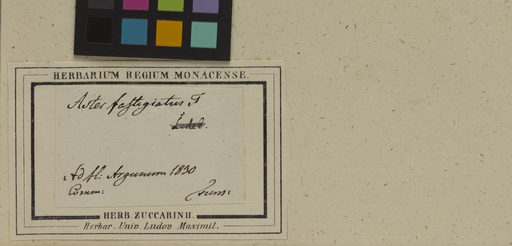 HERBARIUM REGIUM MONACENSE.
Aster fastigiatus F
Ledeb.
Ad fl: Argunum 1830
Comm:
HERB. ZUCCARINII.
Herbar. Univ. Ludov. Maximil.